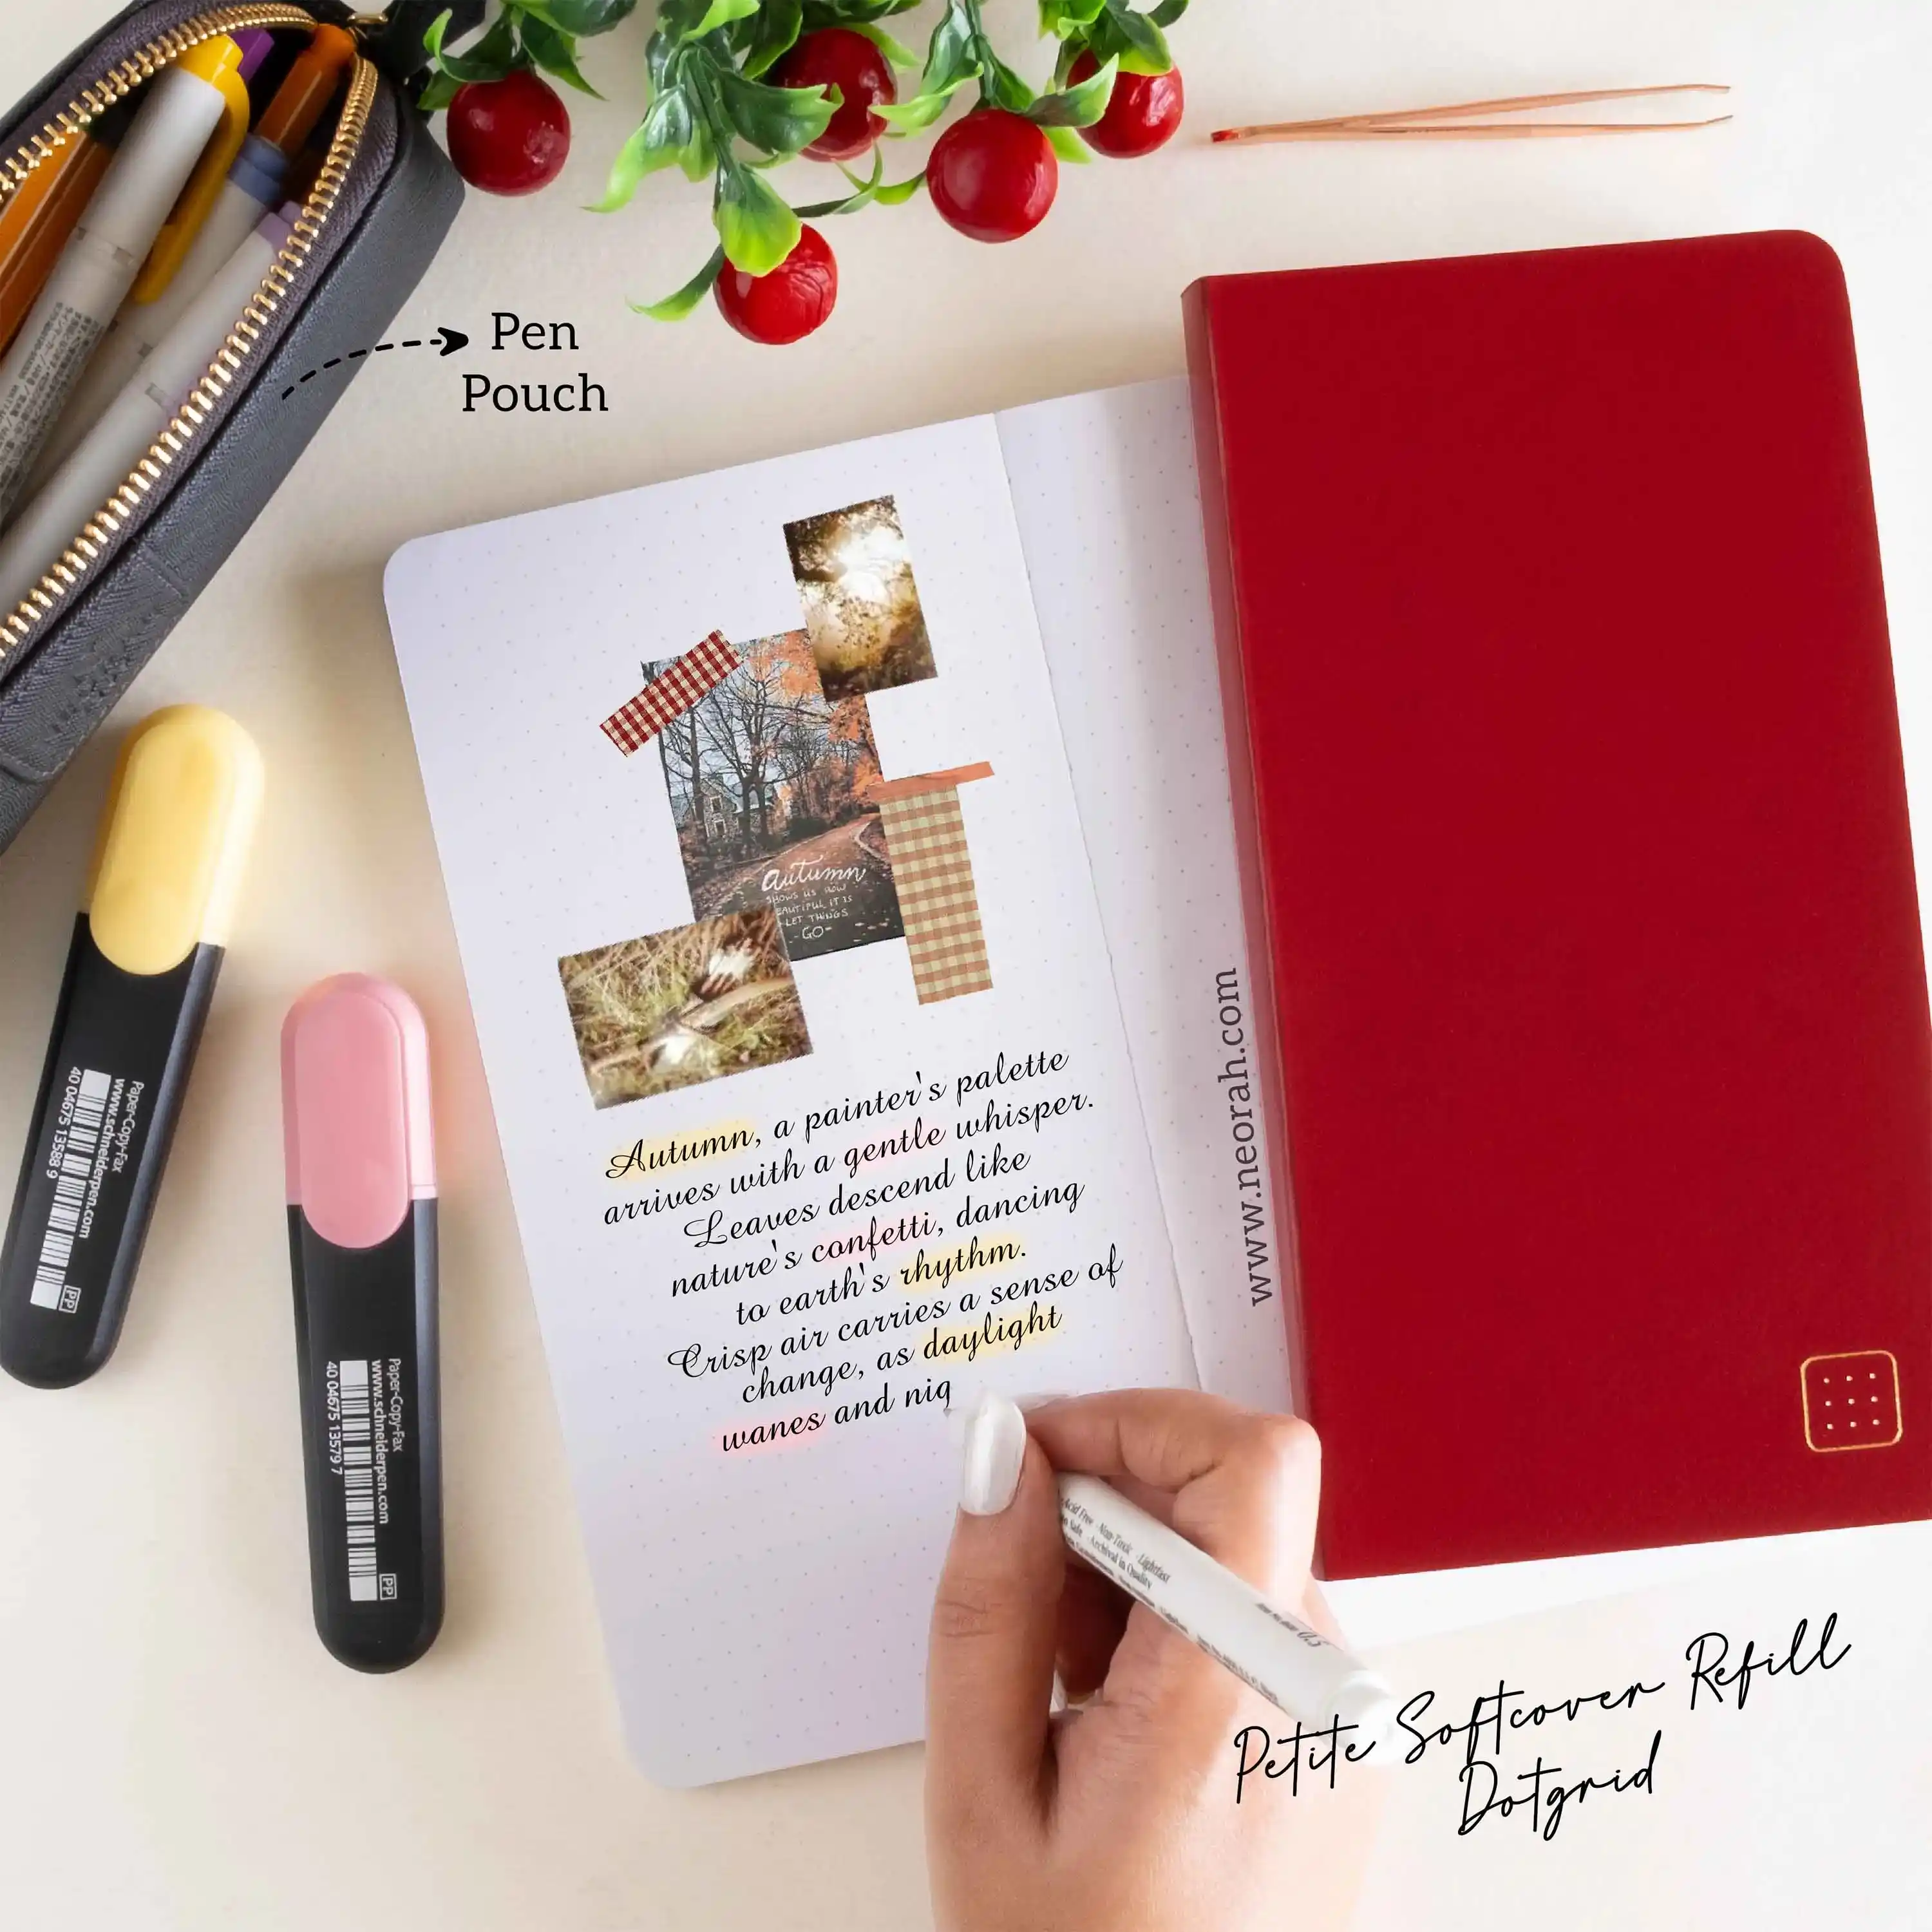 Pen
Pouch
autumn
SHOWS US HOW
BEAUTIFUL IT IS
LET THINGS
-GO-
Autumn, a painter's palette
arrives with a gentle whisper.
Leaves descend like
nature's confetti, dancing
to earth's rhythm.
Crisp air carries a sense of
change, as daylight
wanes and nig
www.neorah.com
Paper-Copy-Fax
www.schneiderpen.com
40 04675 13588 9
PP
Paper-Copy-Fax
www.schneiderpen.com
40 04675 13579 7
PP
Acid Free · Non-Toxic · Lightfast
Safe · Archival in Quality
Petite Softcover Refill
Dotgrid